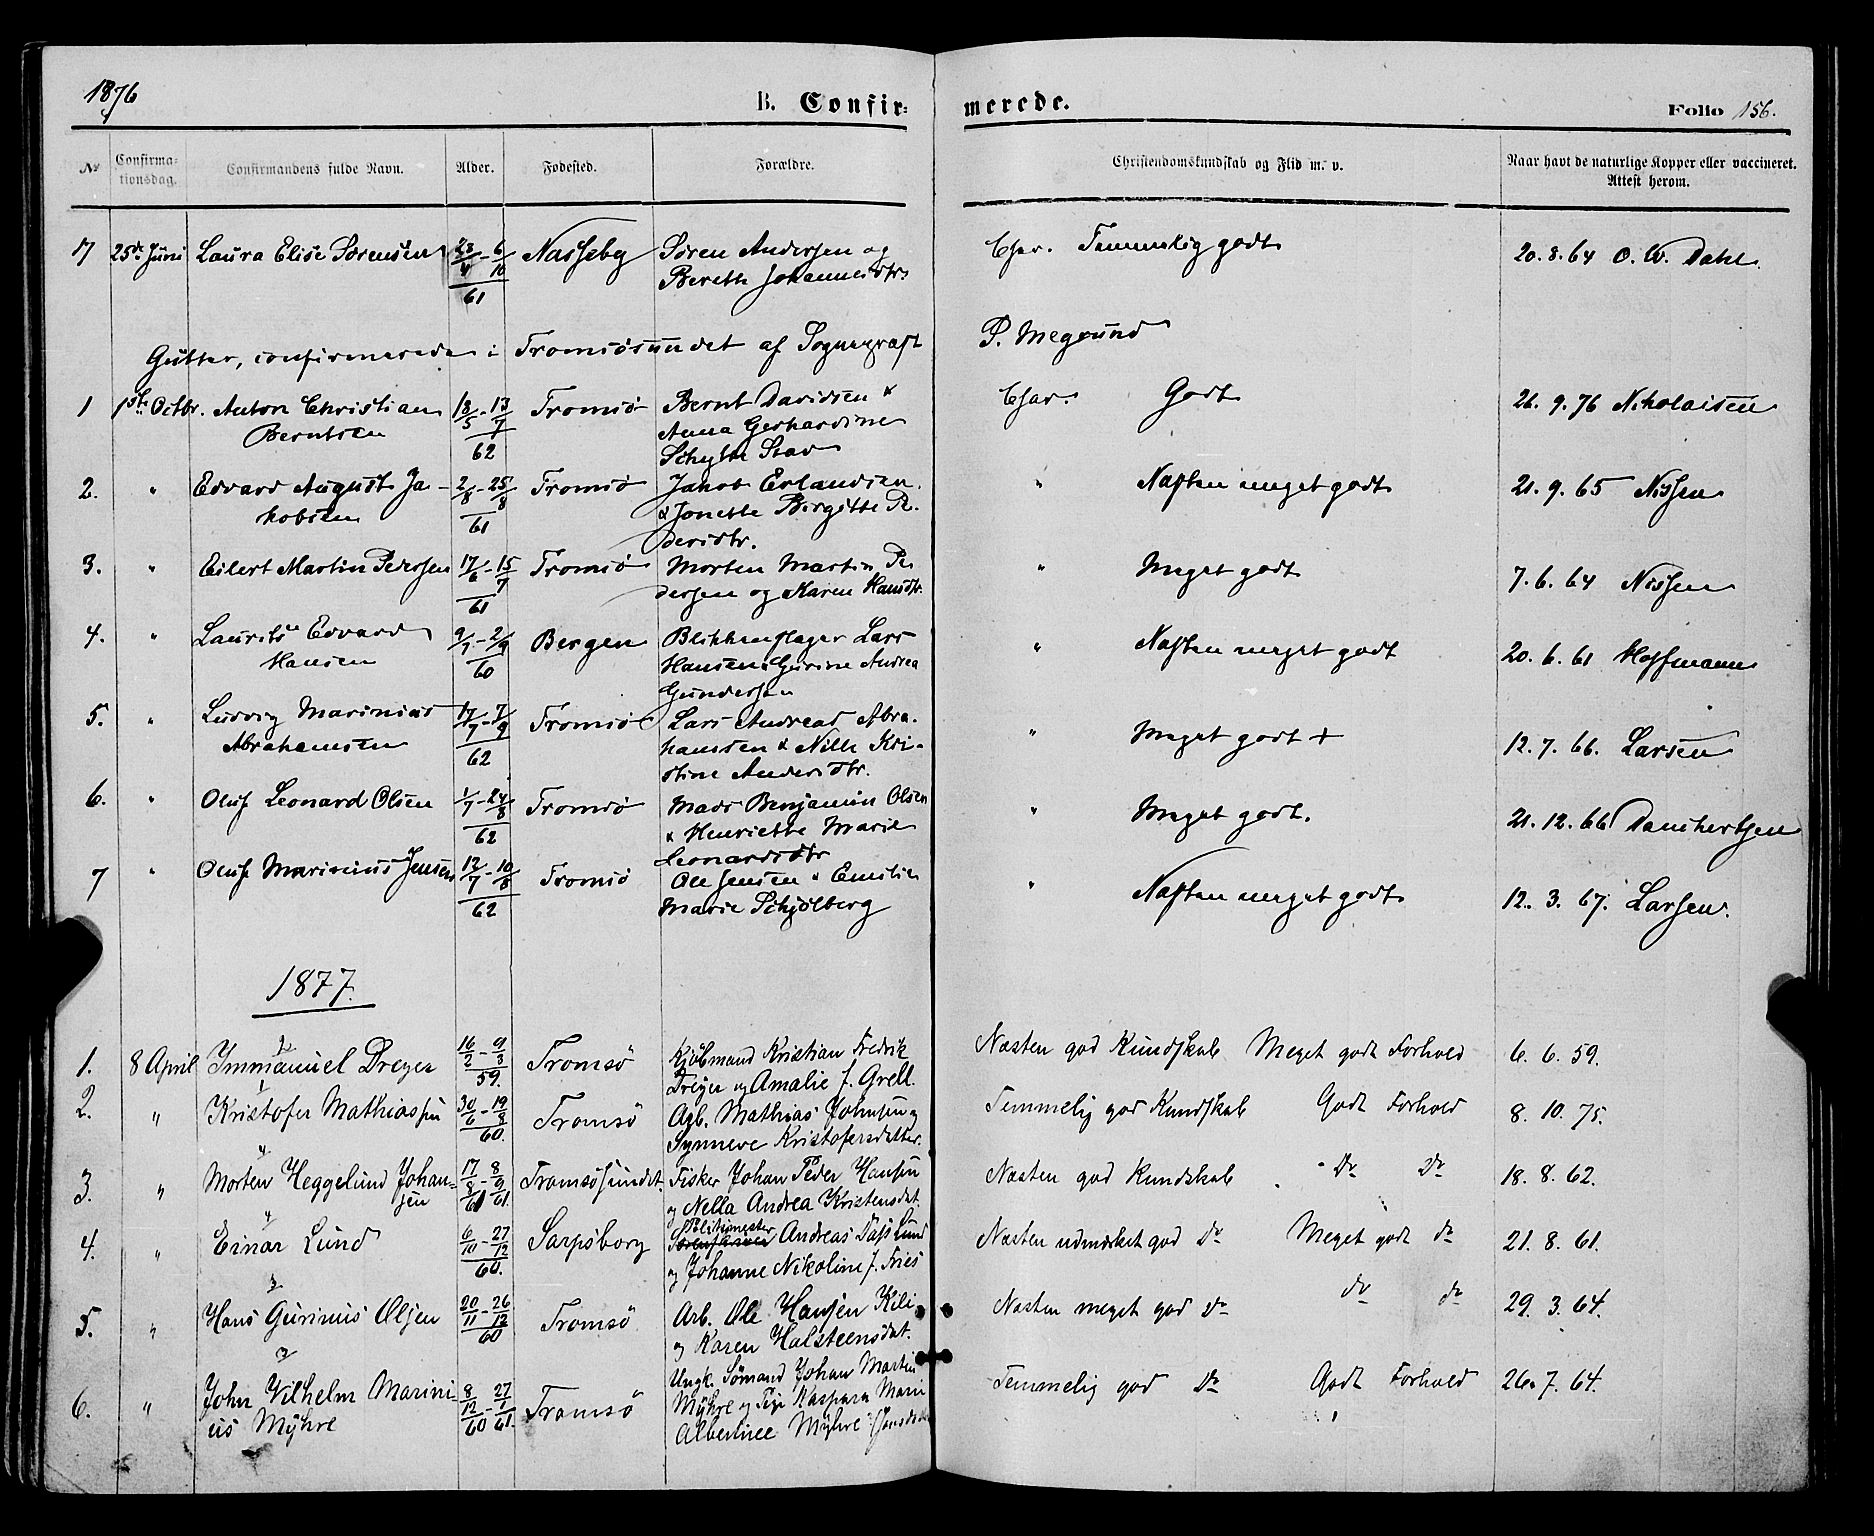 1876
B. Confir= merede. Folio 156.
No Confirma-tionsdag. Confirmandens fulde Navn. Alder. Fødested. Forældre. Christendomskundskab og Flid m. v. Naar havt de naturlige Kopper eller vaccineret. Attest herom.
7 25de Juni Laura Elise Sørensen 23/4 - 6/10 61 Nasseby Søren Andersen og Char. Temmelig godt 20.8.64 O. W. Dahl.
Bereth Johannesdtr
Gutter, confirmerede i Tromsøsundet af Sognepræst P.
1 1ste Octbr. Anton Christian 18/5 - 13/7 62 Tromsø Bernt Davidsen & Char. Godt 26.9.76 Nikolaisen
Berntsen Anna Gerhardine
2. " Edvard August Ja- 2/8 - 25/8 61 Tromsø Jakob Erlandsen " Næsten meget godt 21.9.65 Nissen
kobsen & Jonette Birgitte Pe-
dersdtr.
3. " Eilert Martin Pedersen 17/6 - 15/7 61 Tromsø Morten Martin Pe- " Meget godt 7.6.64 Nissen
dersen og Karen Hansdtr.
4. " Laurits Edvard 9/7 - 2/9 60 Bergen Blikkenslager Lars " Næsten meget godt 20.6.61 Hoffmann
Hansen Hansen & Gurine Andrea
Gundersen
5. " Ludvig Marinius 17/7 - 7/9 62 Tromsø Lars Andreas Abra- " Meget godt + 12.7.66. Larsen
Abrahamsen hamsen & Nille Kri-
stine Andersdtr.
6. " Oluf Leonard Olsen 1/7 - 24/8 62 Tromsø Mads Benjamin Olsen " Meget godt. 21.12.66 Danchertsen
& Henriette Marie
Leonardsdtr
7 " Oluf Marinius Jensen 12/7 - 10/8 62 Tromsø Ole Jensen & Emilie " Næsten meget godt 12.3.67. Larsen.
Marie Schjølberg
1877.
1. 8 April Immanuel Dreyer 16/2 - 9/3 59. Tromsö Kjöbmand Kristian Fredrik Næsten god Kundskab Meget godt Forhold 6.6.59.
Dreyer og Amalie f. Grell.
2. " Kristofer Mathiassen 30/6 - 19/8 60. Tromsö Agb. Mathias Johnsen og Temmelig god Kundskab Godt Forhold 8.10.75.
Synneve Kristofersdatter.
3. " Morten Heggelund Johan- 17/8 61 - 8/9 61. Tromsösundet. Fisker Johan Peder Hansen Næsten god Kundskab " Do Do 18.8.62.
sen og Nella Andrea Kristensdat.
4. " Einar Lund 6/10 - 27/12 60. Sarpsborg Politimester Andreas Dass Lund Næsten udmærket god Do Meget godt do 21.8.61.
og Johanne Nikoline f. Fries
5. " Hans Gurinius Olsen 20/11 - 26/12 60 Tromsö Arb. Ole Hansen Kili Næsten meget god Do do do 29.3.64.
og Karen Halsteensdat.
6. " John Vilhelm Marini- 8/12 60 - 27/1 61. Tromsö Ungk. Sömand Johan Martin Temmelig god Do Godt Forhold 26.7.64.
us Myhre Myhre og Pige Kaspara Marie
Albertine Myhre